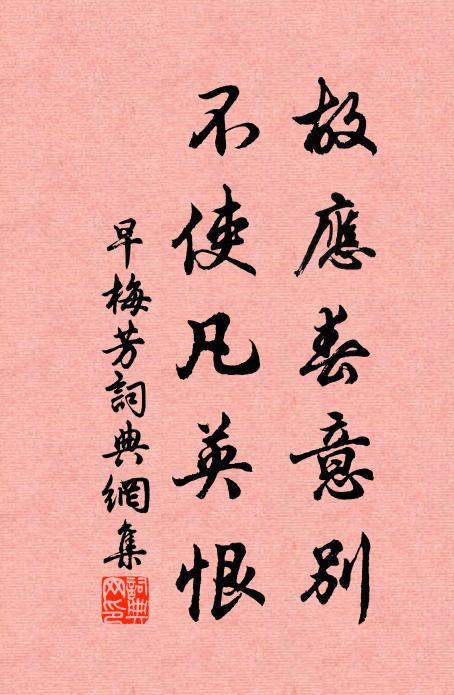 故應春意別
不使凡英恨
早梅芳詞典網集
詞典網印